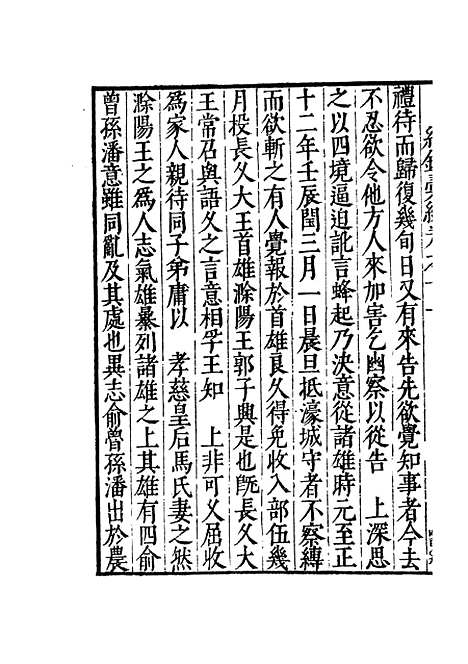 禮待而歸復幾旬日又有來告先欲覺知事者今去
不忍欲令他方人來加害乞幽察以從告　上深思
之以四境逼迫訛言蜂起乃決意從諸雄時元至正
十二年壬辰閏三月一日晨旦抵濠城守者不察縛
而欲斬之有人覺報於首雄良久得免收入部伍幾
月投長久大王首雄滁陽王郭子興是也旣長久大
王常召與語久之言意相孚王知　上非可久屈收
爲家人親待同子弟庸以　孝慈皇后馬氏妻之然
滁陽王之爲人志氣雄暴列諸雄之上其雄有四俞
曾孫潘意雖同亂及其處也異志俞曾孫潘出於農